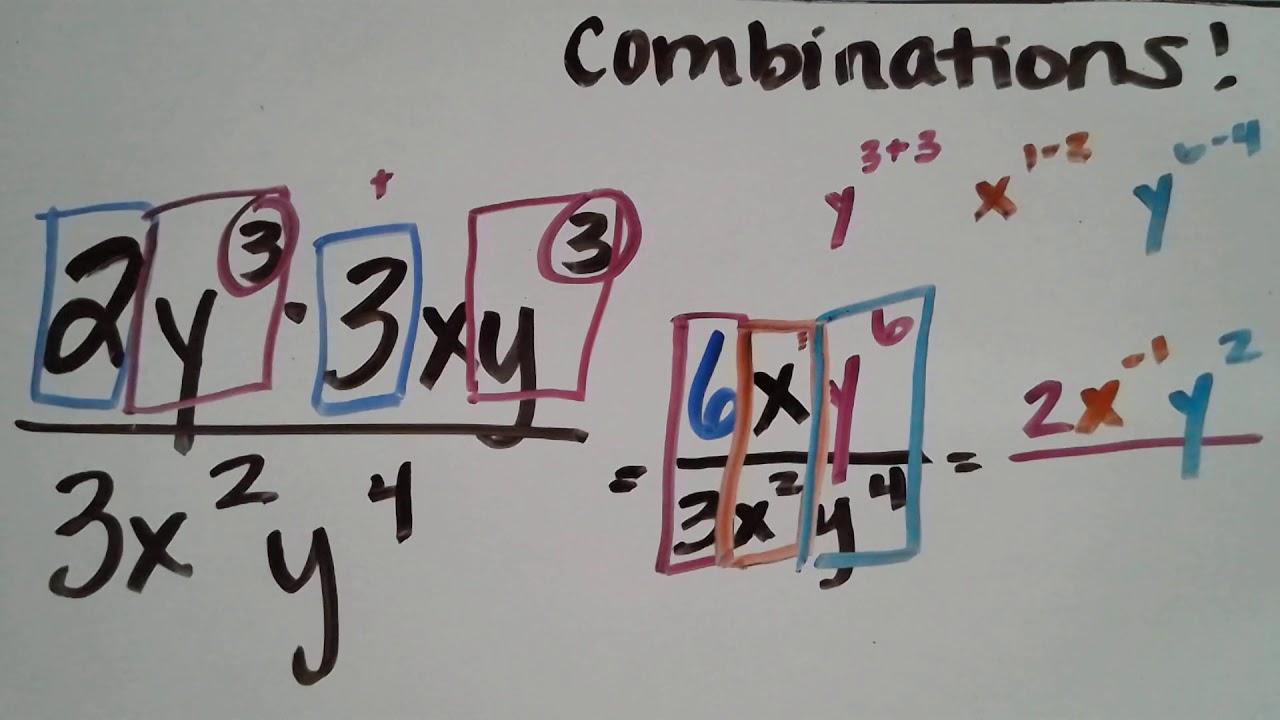 Combinations!
y^{3+3} x^{1-2} y^{6-4}
+
2y^3 · 3xy^3 / 3x^2y^4 = 6x^1y^6 / 3x^2y^4 = 2x^{-1}y^2